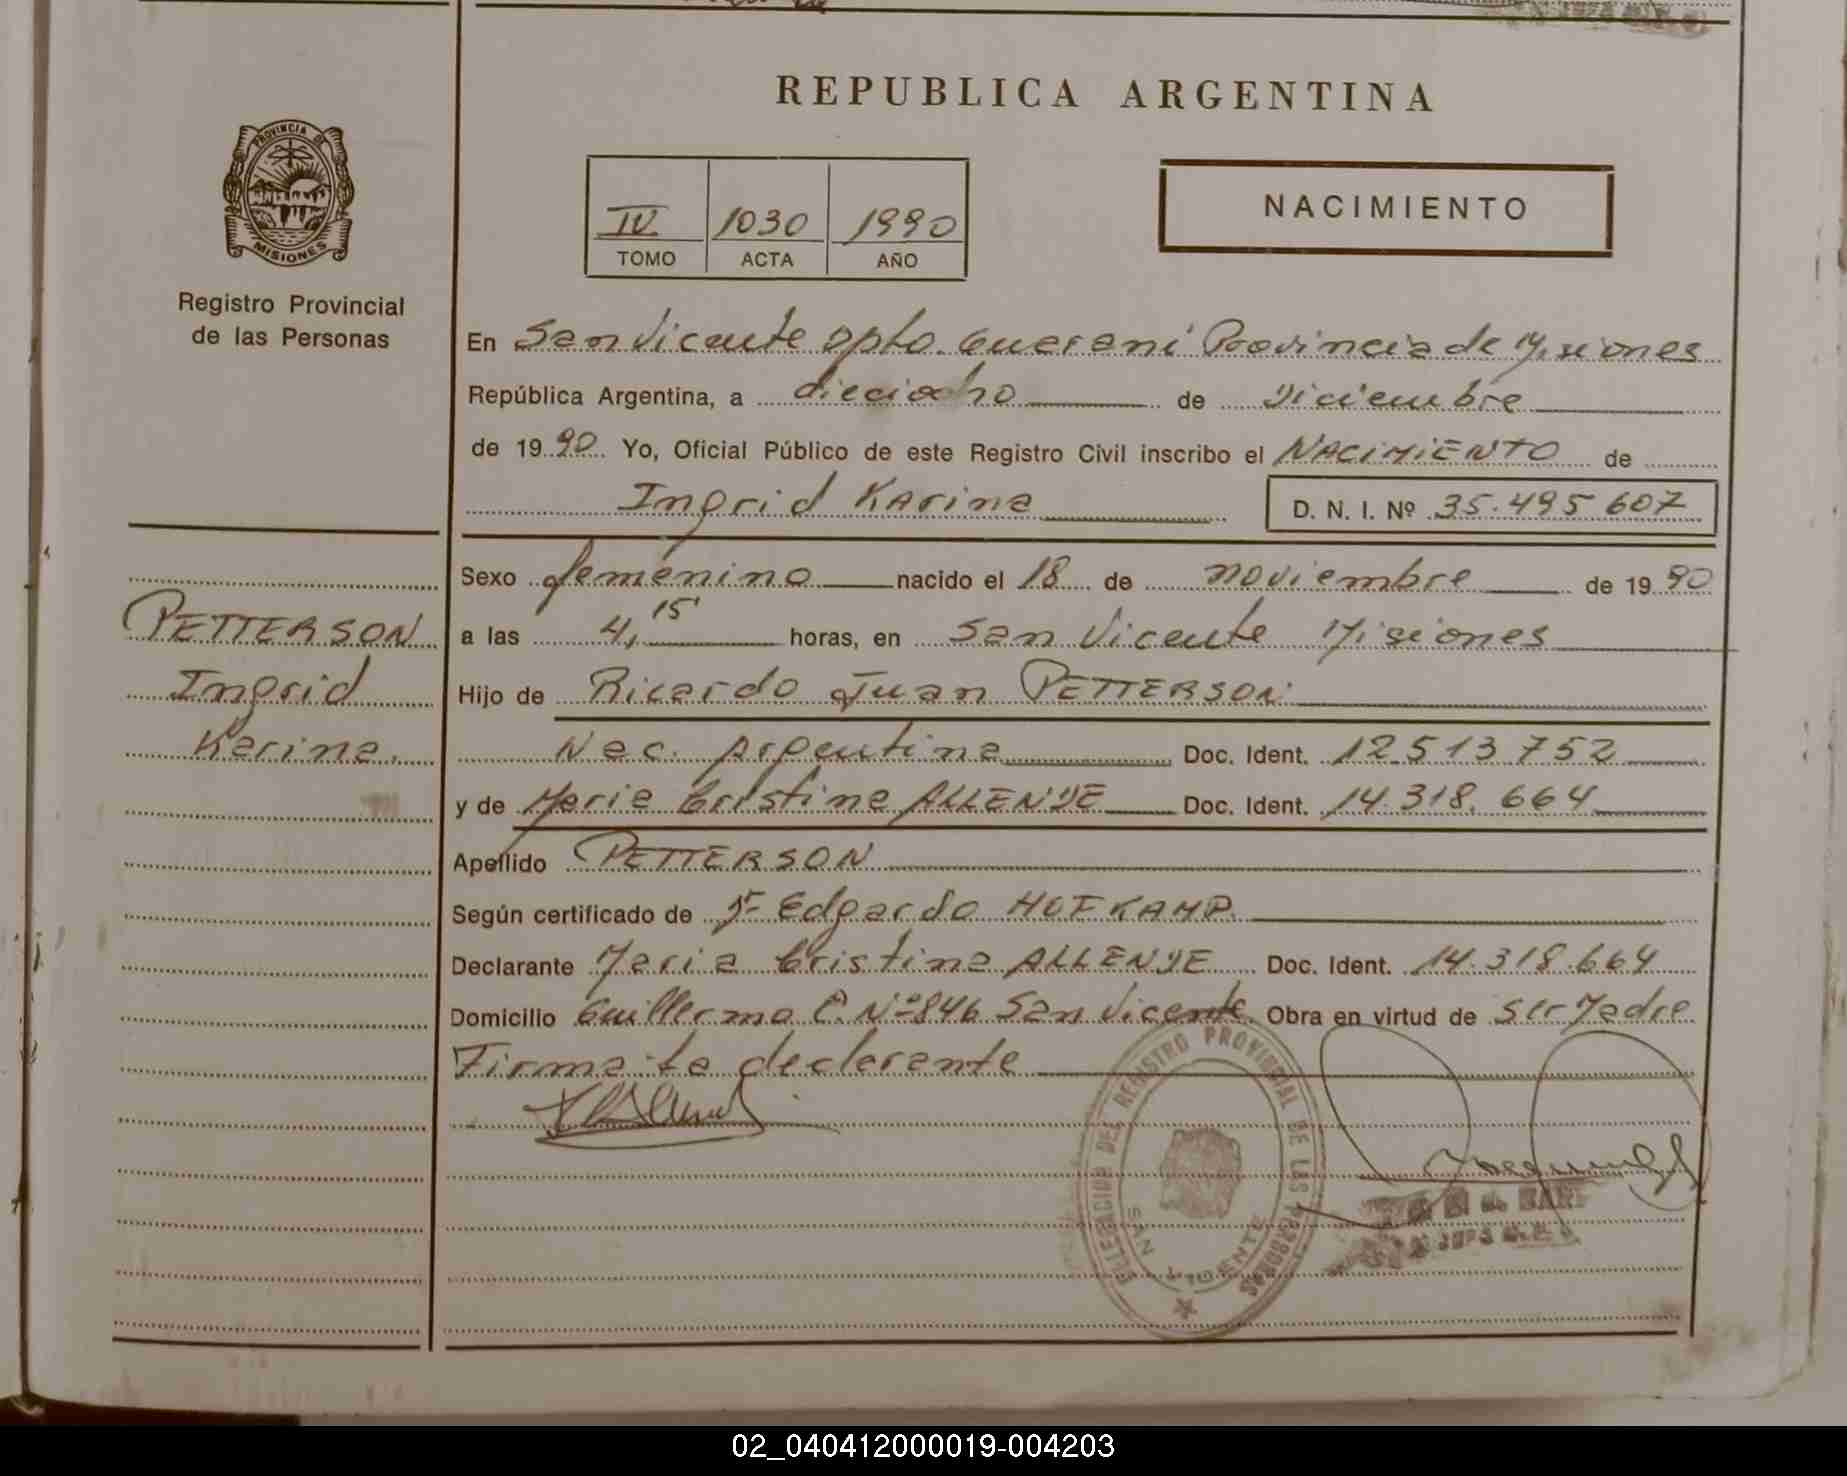 REPUBLICA ARGENTINA
PROVINCIA DE
MISIONES
Registro Provincial
de las Personas
IV 1030 1990
TOMO ACTA AÑO
NACIMIENTO
En San Vicente Dpto. Guarani Provincia de Misiones
República Argentina, a dieciocho de Diciembre
de 1990 Yo, Oficial Público de este Registro Civil inscribo el NACIMIENTO de
Ingrid Karina D. N. I. Nº 35.495 607
Sexo femenino nacido el 18 de noviembre de 1990
PETTERSON
Ingrid
Karina.
a las 4,15' horas, en San Vicente Misiones
Hijo de Ricardo Juan PETTERSON
Nac. Argentina Doc. Ident. 12 513 752
y de Maria Cristina ALLENDE Doc. Ident. 14.318.664
Apellido PETTERSON
Según certificado de Dr Edgardo HOFKAMP
Declarante Maria Cristina ALLENDE Doc. Ident. 14.318.664
Domicilio Guillermo C. Nº 846 San Vicente Obra en virtud de ser Madre
Firma la declarante
DELEGACION DEL REGISTRO PROVINCIAL DE LAS PERSONAS
SAN VICENTE
02_040412000019-004203